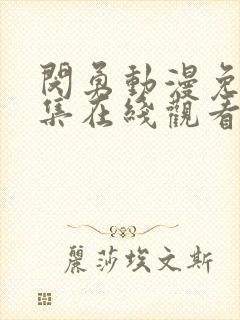 閃勇動漫免
集在綫觀看
麗莎埃文斯